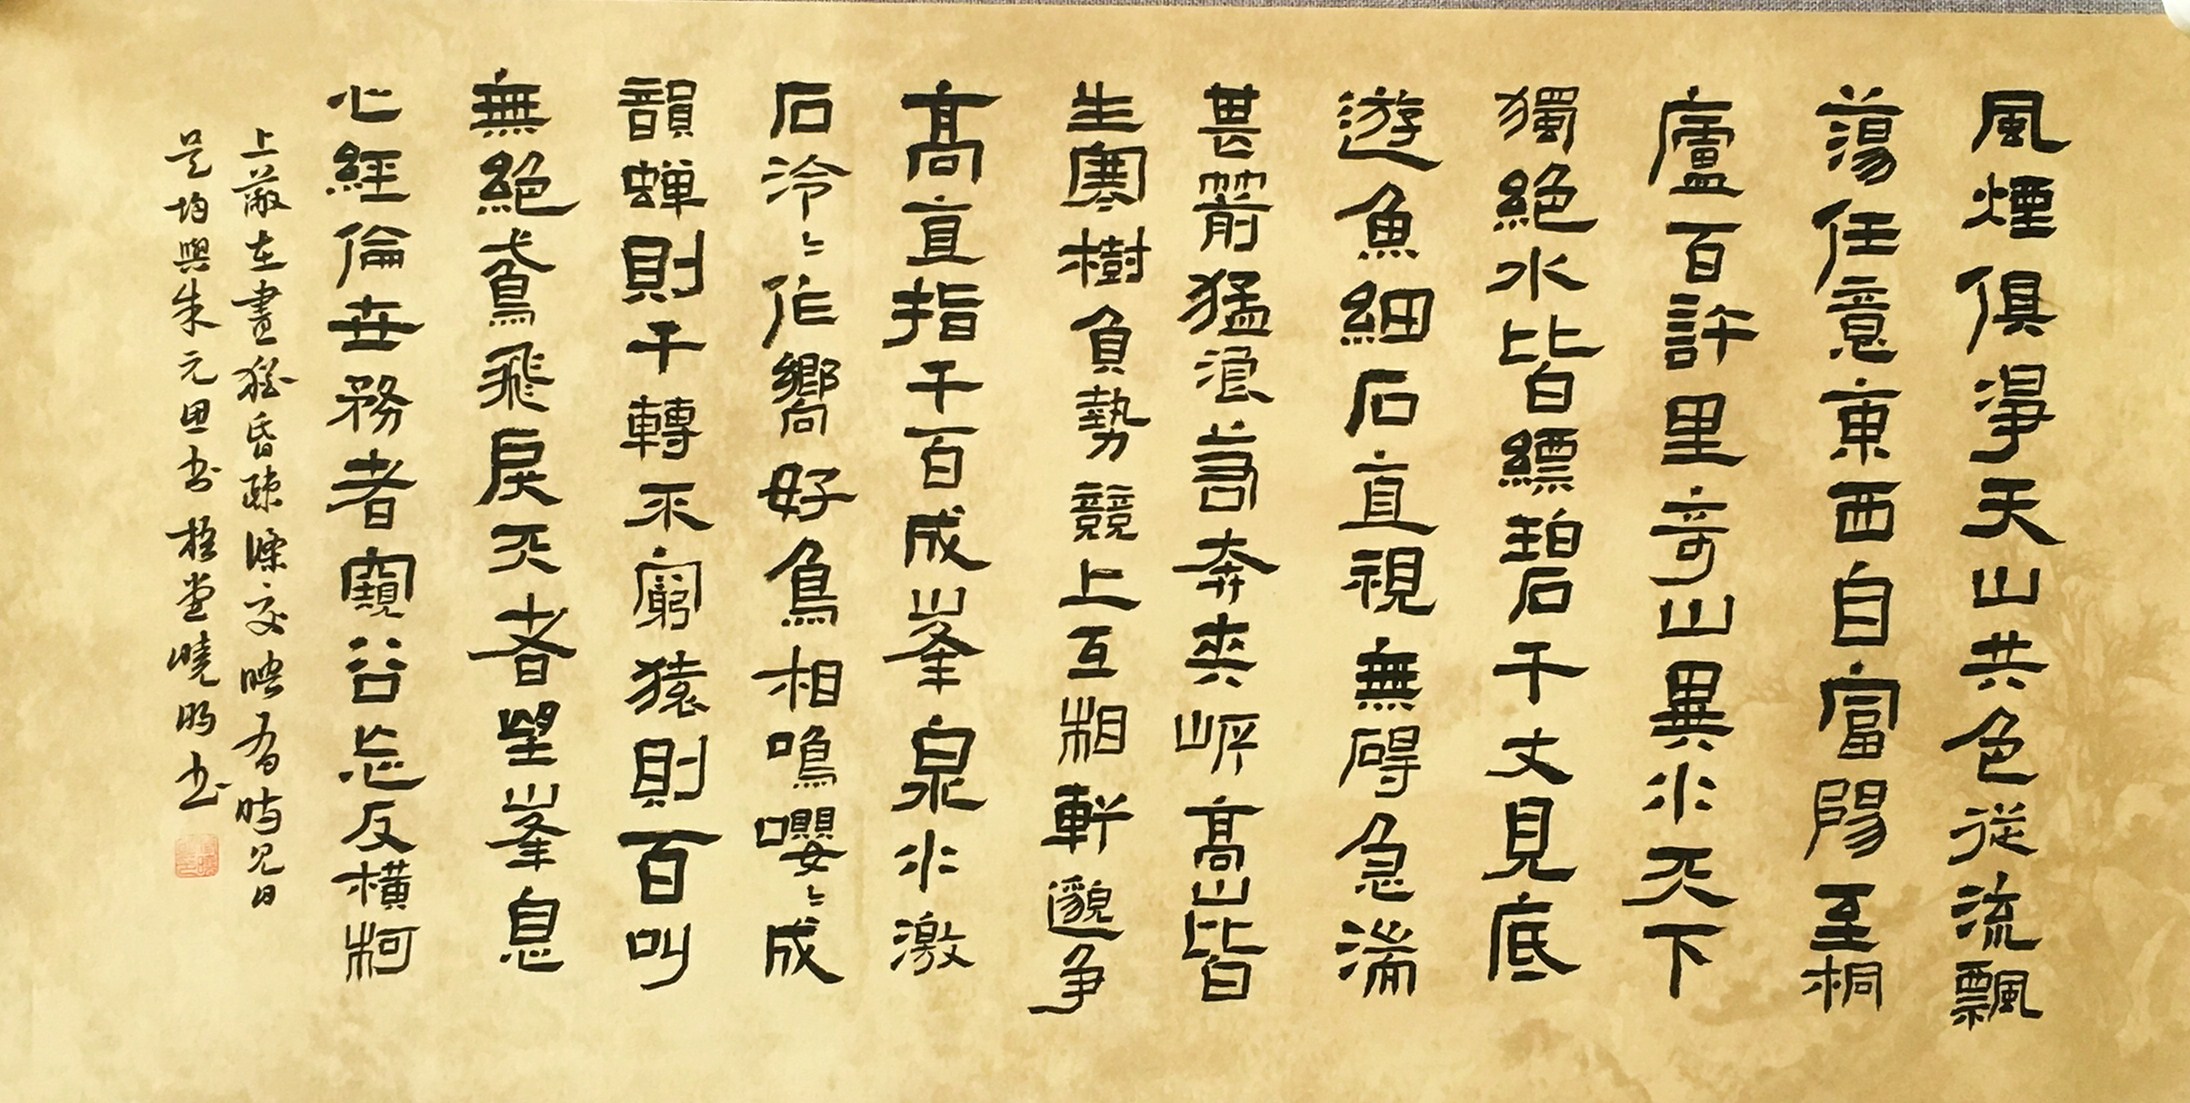 風煙俱淨天山共色從流飄
蕩任意東西自富陽至桐
廬百許里奇山異水天下
獨絕水皆縹碧千丈見底
遊魚細石直視無碍急湍
甚箭猛浪若奔夾岸高山皆
生寒樹負勢競上互相軒邈爭
高直指千百成峯泉水激
石泠〻作響好鳥相鳴嚶〻成
韻蟬則千轉不窮猿則百叫
無絕鳶飛戾天者望峯息
心經綸世務者窺谷忘反橫柯
上蔽在晝猶昏疎條交映有時見日
吳均與朱元思書 梧堂曉明書